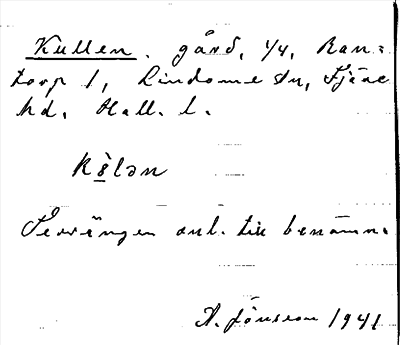 Kullen. gård, 1/4, Ran=
torp 1, Lindome sn, Fjäre
hd. Hall. l.
kö̀lən
Terrängen anl. till benämn.
A. Jönsson 1941